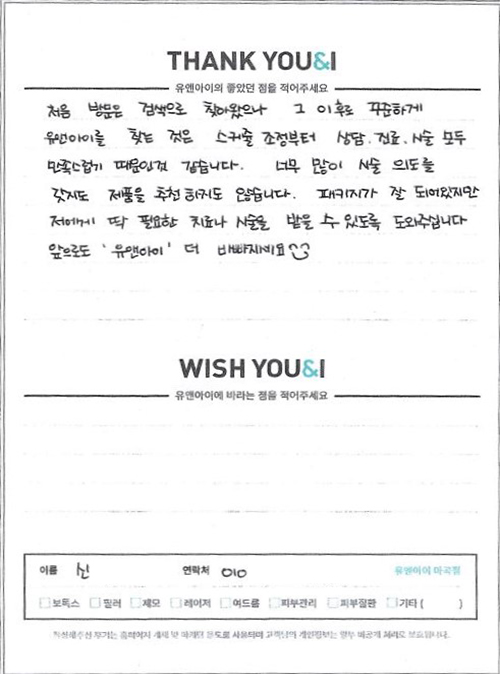 THANK YOU&I
유앤아이의 좋았던 점을 적어주세요
처음 방문은 검색으로 찾아왔으나 그 이후로 꾸준하게
유앤아이를 찾는 것은 스케줄 조정부터 상담, 진료, 시술 모두
만족스럽기 때문인것 같습니다. 너무 많이 시술 의도를
갖지도 제품을 추천하지도 않습니다. 패키지가 잘 되어있지만
저에게 딱 필요한 치료나 시술을 받을 수 있도록 도와주십니다
앞으로도 '유앤아이' 더 바빠지세요
WISH YOU&I
유앤아이에 바라는 점을 적어주세요
이름 신 연락처 010 유앤아이 마곡점
보톡스 필러 제모 레이저 여드름 피부관리 피부질환 기타 ( )
작성해주신 후기는 홈페이지 게재 및 마케팅 용도로 사용되며 고객님의 개인정보는 모두 비공개 처리로 보호됩니다.